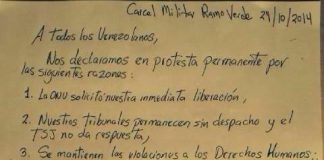 Carcel Militar Ramo Verde 29/10/2014
A todos los Venezolanos,
Nos declaramos en protesta permanente por
las siguientes razones:
1. La ONU solicitó nuestra inmediata liberación,
2. Nuestros Tribunales permanecen sin despacho y el
TSJ no da respuesta,
3. Se mantienen las violaciones a los Derechos Humanos: